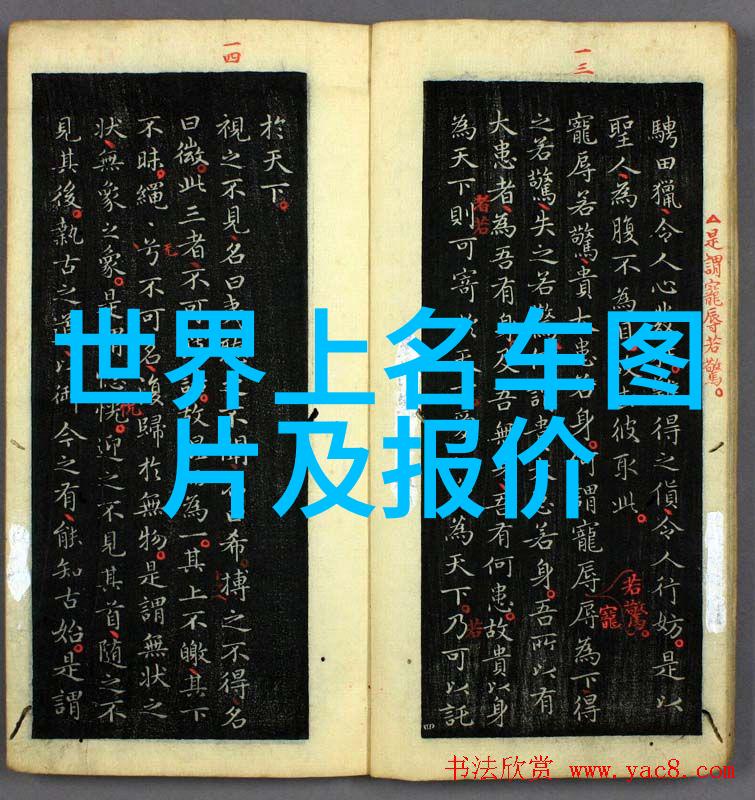 一三
一四
△是謂寵辱若驚。
騁田獵令人心發得之貨令人行妨。是以
聖人為腹不為目彼取此。
寵辱若驚貴大患若身。何謂寵辱辱為下得
之若驚失之若驚謂貴大患若身。吾所以有
大患者為吾有身及吾無吾有何患。故貴以身
為天下則可寄以天下愛為天下。乃可以託
若驚。
寵
者若
若
於天下。
視之不見名曰夷不聞名曰希搏之不得名
曰微。此三者不可詰故為一。其上不皦其下
不昧。繩、兮不可名復歸於無物。是謂無狀之
狀無象之象。是謂惚恍。迎之不見其首隨之不
見其後。執古之道以御今之有能知古始。是謂
世界上名车图
片及报价
书法欣赏 www.yac8.com